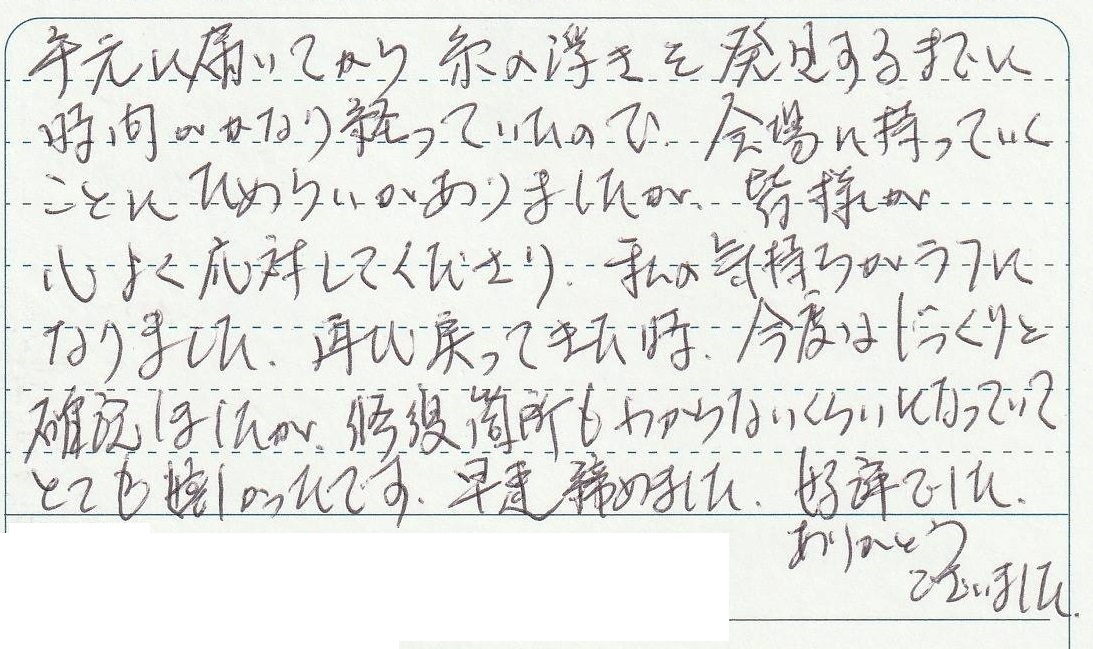 手元に届いてから 糸の浮きを 発見するまでに
時間がかなり経っていたので、会場に持っていく
ことに ためらいがありましたが、皆様が
心よく応対してくださり、私の気持ちがラフに
なりました。再び戻ってきた時、今度はじっくりと
確認しましたが、修復箇所もわからないくらいになっていて
とても嬉しかったです。早速締めました。好評でした。
ありがとう
ございました。